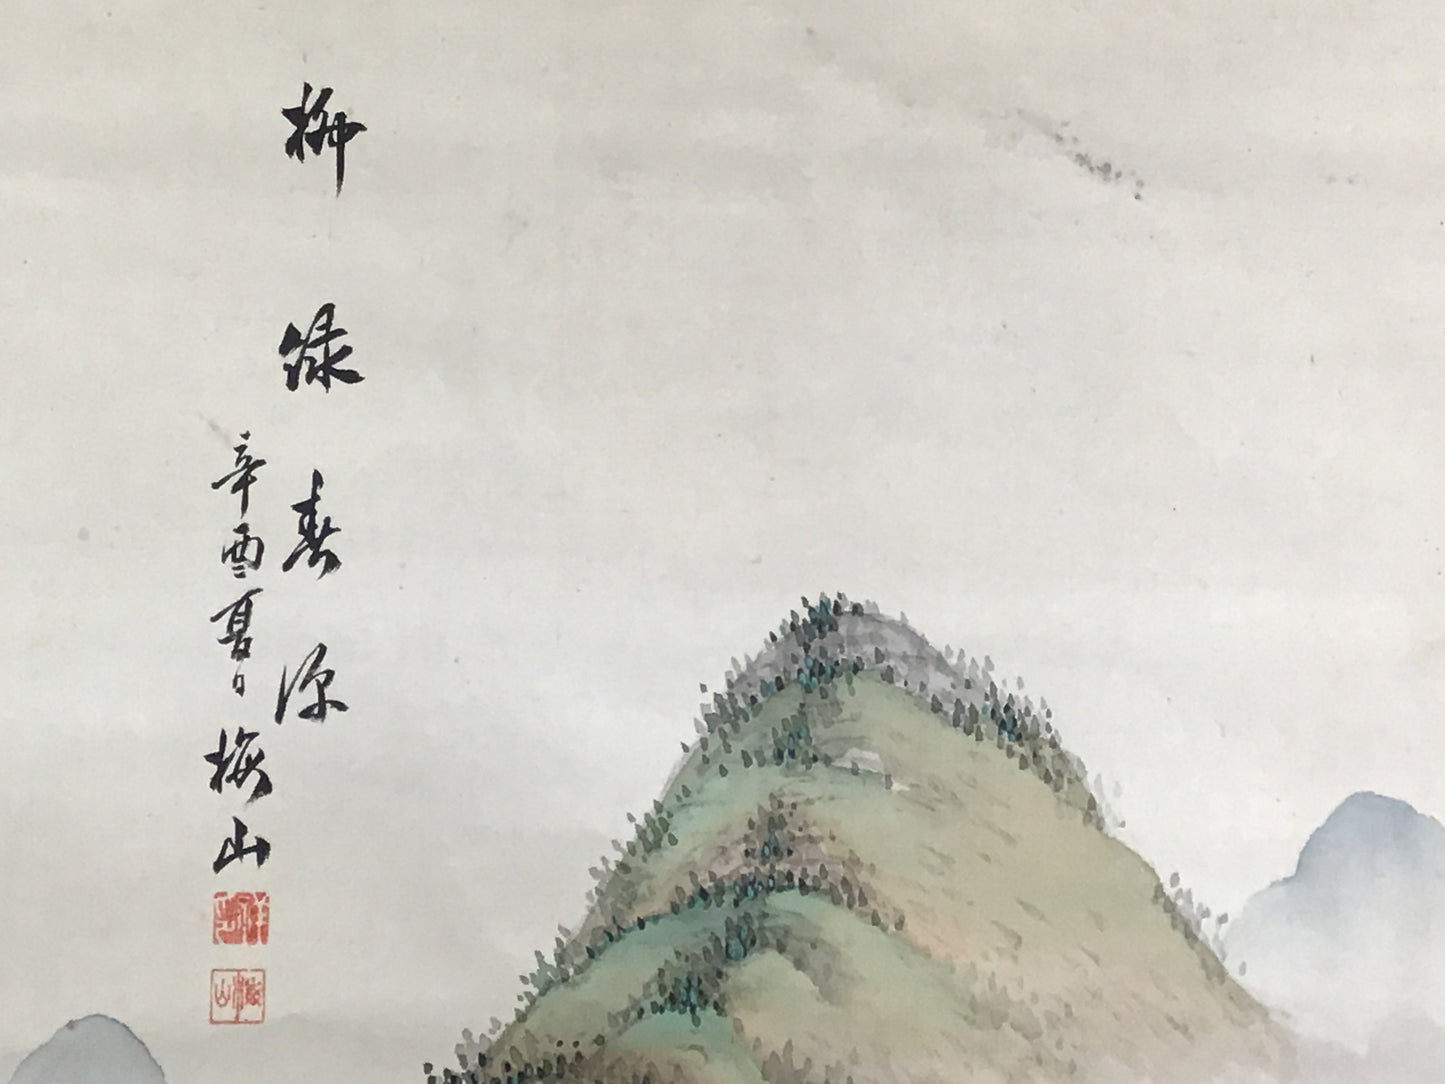 柳緑春深
辛酉夏日梅山